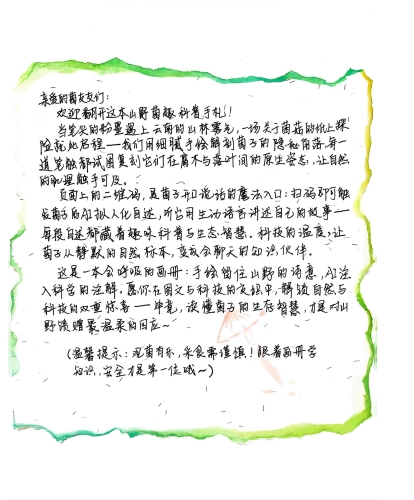 亲爱的菌友友们：
欢迎翻开这本山野菌趣科普手札！
当笔尖的粉墨遇上云南的山林雾气，一场关于菌菇的纸上探
险就此启程——我们用细腻手绘解剖菌子的隐秘角落，每一
道笔触都试图复刻它们在腐木与落叶间的原生姿态，让自然
的肌理触手可及。
页面上的二维码，是菌子开口说话的魔法入口：扫码即可触
发菌子的AI拟人化自述，听它用生动语言讲述自己的故事——
每段自述都藏着趣味科普与生态智慧。科技的温度，让
菌子从静默的自然标本，变成会聊天的知识伙伴。
这是一本会呼吸的画册：手绘留住山野的诗意，AI注
入科学的注解。愿你在图文与科技的交织中，解锁自然与
科技的双重惊喜——毕竟，读懂菌子的生存智慧，才是对山
野馈赠最温柔的回应~
（温馨提示：观菌有术，采食需谨慎！跟着画册学
知识，安全才是第一位哦~）